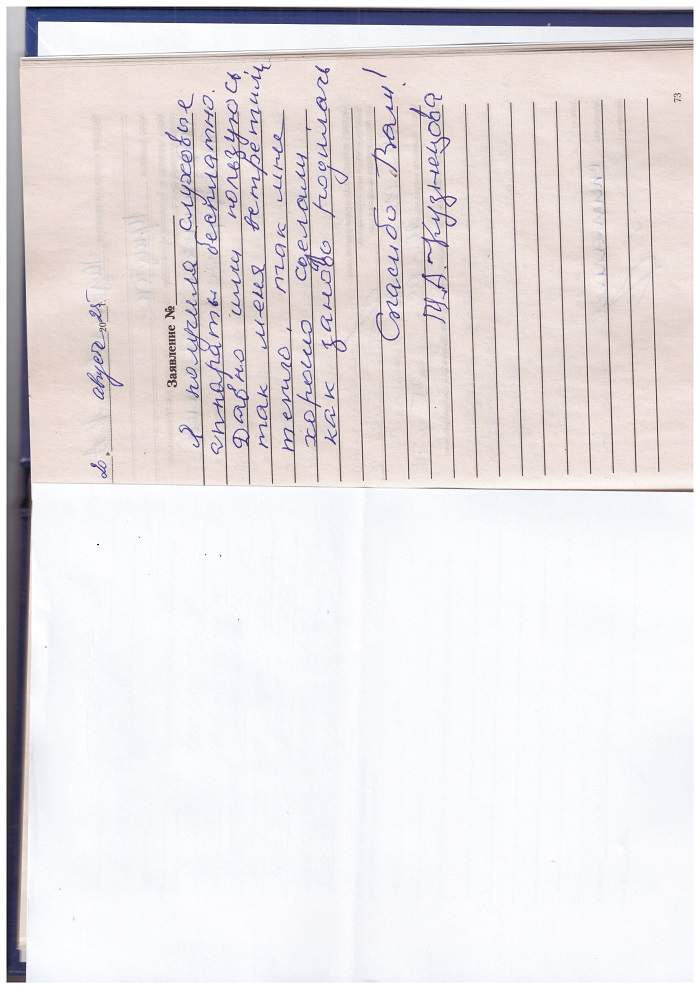 20. август 2025 г.
Заявление №
Я получила слуховые
аппараты бесплатно.
Давно ими пользуюсь
так меня встретили
тепло, так мне
хорошо сделали,
как заново родилась
Спасибо Вам!
Кузнецова
73